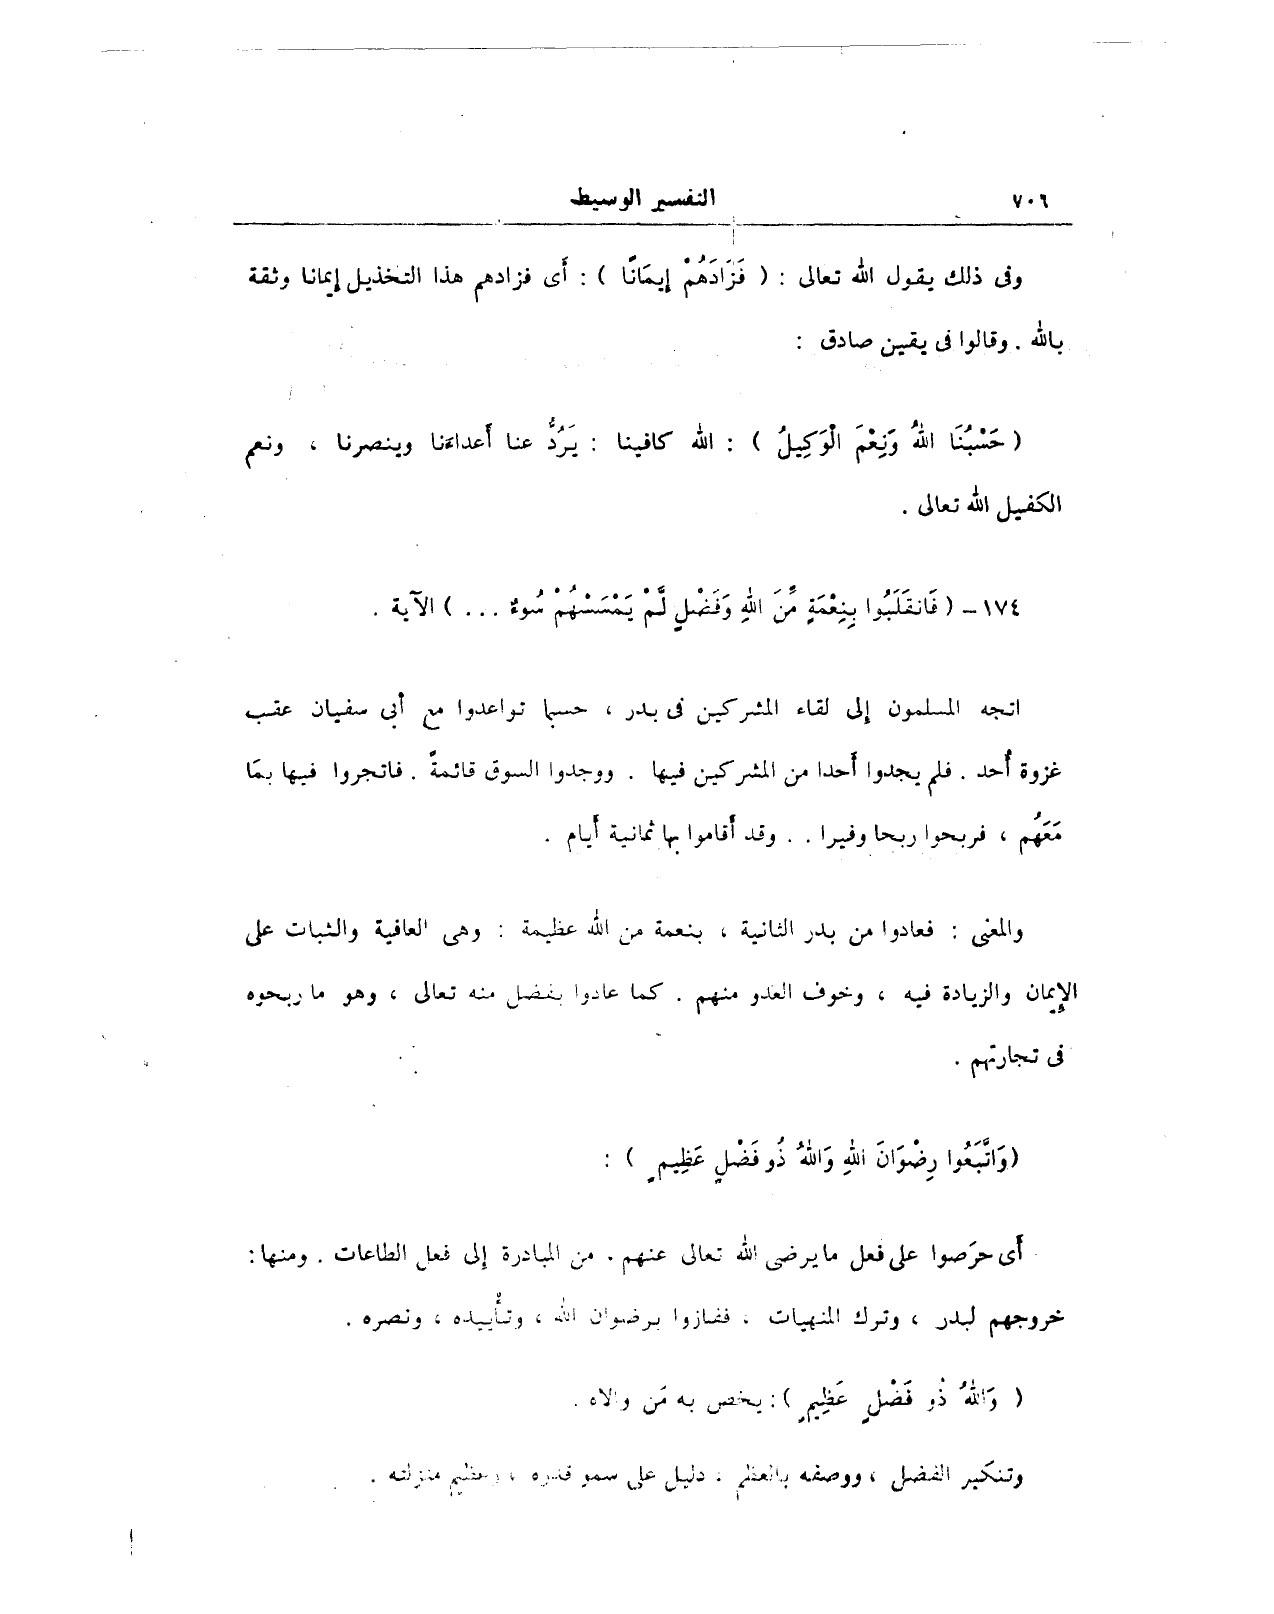 ٧٠٦
التفسير الوسيط
وفى ذلك يقول الله تعالى : ( فَزَادَهُمْ إِيمَانًا ) : أَى فزادهم هذا التخذيل إيمانا وثقة
بالله . وقالوا فى يقين صادق :
( حَسْبُنَا اللهُ وَنِعْمَ الْوَكِيلُ ) : الله كافينا : يَرُدُّ عنا أَعداءَنا وينصرنا ، ونعم
الكفيل الله تعالى .
١٧٤ – ( فَانقَلَبُوا بِنِعْمَةٍ مِّنَ اللهِ وَفَضْلٍ لَّمْ يَمْسَسْهُمْ سُوءٌ ... ) الآية .
اتجه المسلمون إلى لقاء المشركين فى بدر ، حسبما تواعدوا مع أبى سفيان عقب
غزوة أُحد . فلم يجدوا أَحدا من المشركين فيها . ووجدوا السوق قائمةً . فاتجروا فيها بمَا
مَعَهُم ، فربحوا ربحا وفيرا . . وقد أَقاموا بها ثمانية أَيام .
والمعنى : فعادوا من بدر الثانية ، بنعمة من الله عظيمة : وهى العافية والثبات على
الإيمان والزيادة فيه ، وخوف العدو منهم . كما عادوا بفضل منه تعالى ، وهو ما ربحوه
فى تجارتهم .
(وَاتَّبَعُوا رِضْوَانَ اللهِ وَاللهُ ذُو فَضْلٍ عَظِيمٍ ) :
أَى حرَصوا على فعل ما يرضى الله تعالى عنهم . من المبادرة إلى فعل الطاعات . ومنها :
خروجهم لبدر ، وترك المنهيات ، ففازوا برضوان الله ، وتأْييده ، ونصره .
( وَاللهُ ذُو فَضْلٍ عَظِيمٍ ) : يخص به مَن والاه .
وتنكير الفضل ، ووصفه بالعظم ، دليل على سمو قدره ، وعظيم منزلته .